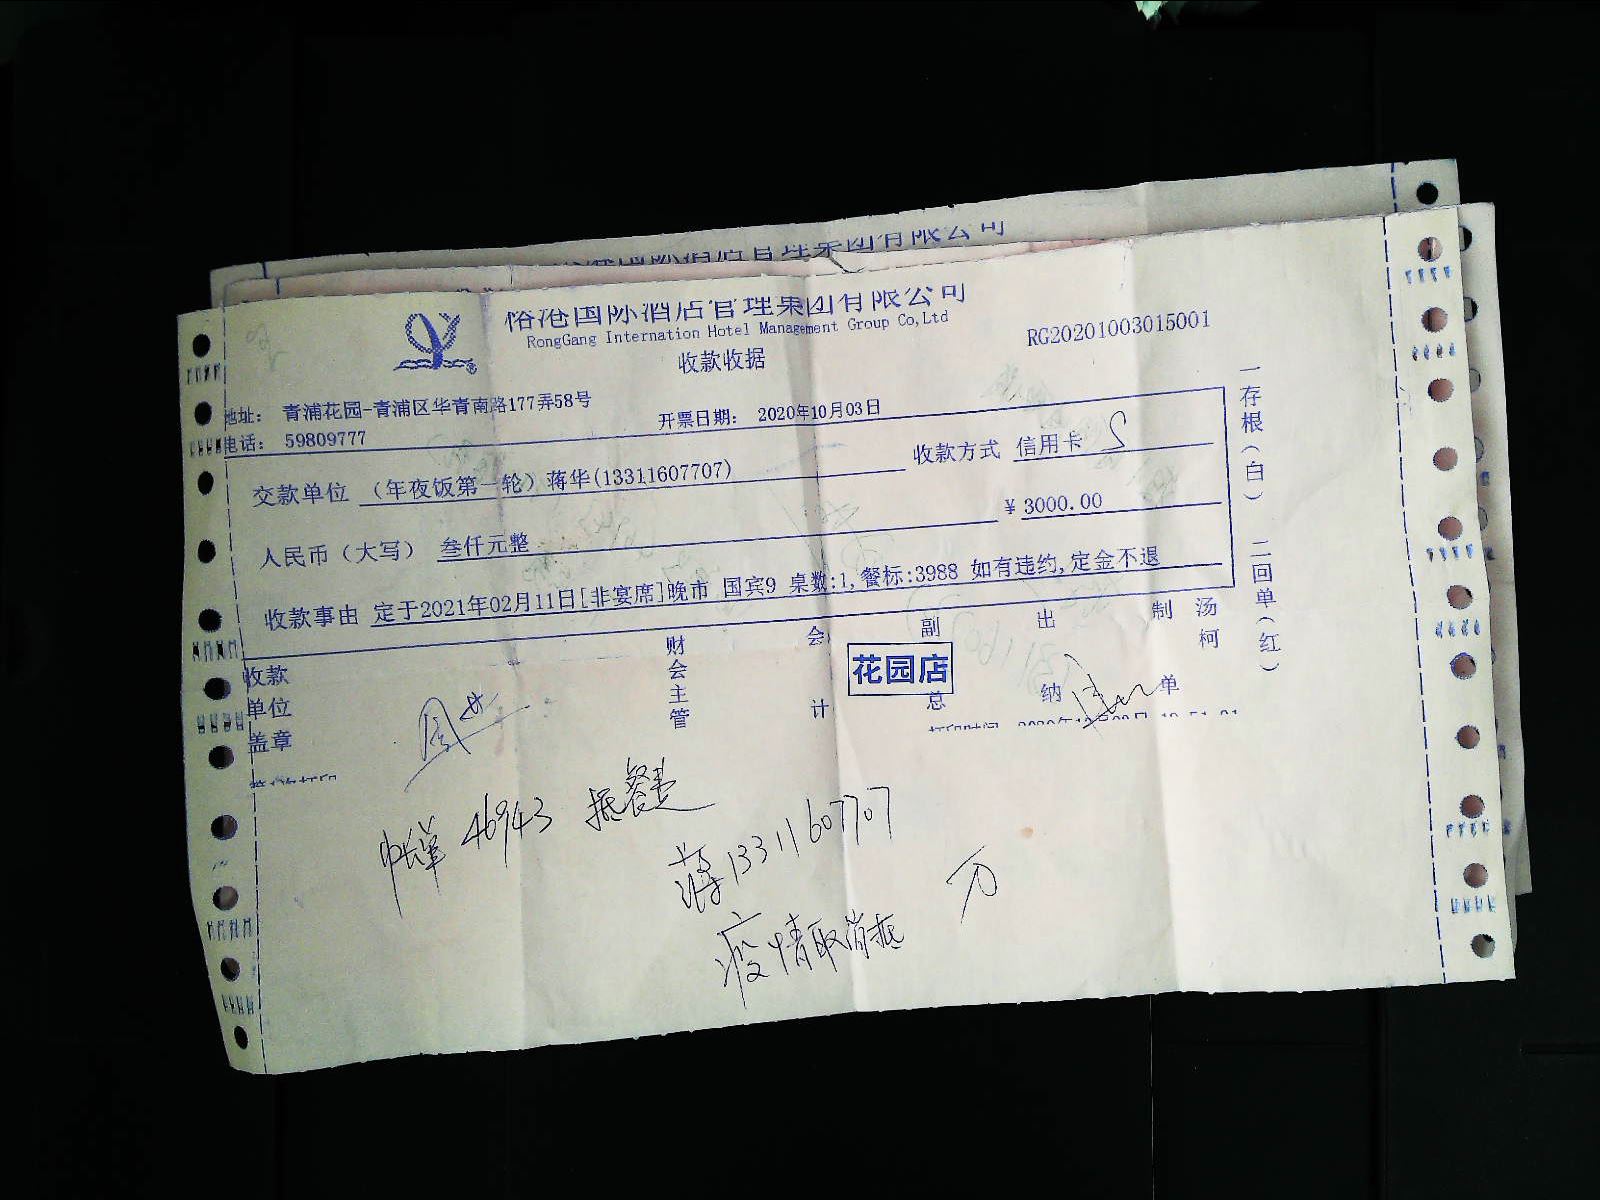 港国际酒店管理集团有限公司
RongGang International Hotel Management Group Co,Ltd
收款收据
RG20201003015001
地址： 青浦花园-青浦区华青南路177弄58号
电话： 59809777
开票日期： 2020年10月03日
交款单位 （年夜饭第一轮）蒋华(13311607707)
收款方式 信用卡
人民币（大写） 叁仟元整
￥3000.00
收款事由 定于2021年02月11日[非宴席]晚市 国宾9 桌数:1,餐标:3988 如有违约,定金不退
收款单位盖章
财会主管
会计
副总
出纳
制单
汤柯
花园店
一存根（白）
二回单（红）
46943 抵餐费
蒋13311607707
疫情取消抵